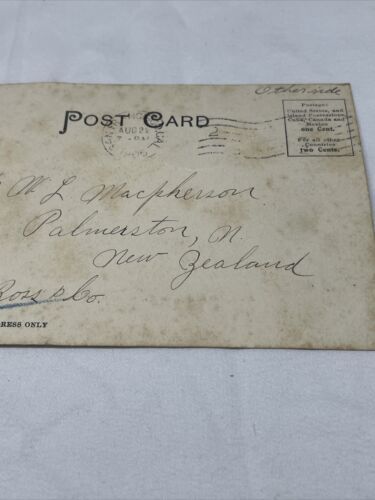 Other side
POST CARD
AUG 21
Postage:
United States, and
island Possessions
Cuba, Canada and
Mexico
one Cent.
For all other
Countries
two Cents.
W L Macpherson
Palmerston, N.
New Zealand
Ross & Co.
RESS ONLY